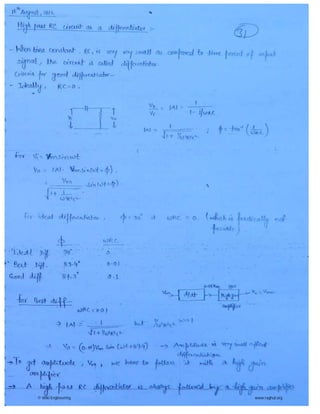 High pass RC circuit as a differentiator :-
31
- When time constant, RC, is very very small as compared to time period of input
signal, the circuit is called differentiator.
Criteria for good differentiator-
- Ideally, RC=0.
Vo/Vi = |A| = 1/(1 - j/wRC)
|A| = 1/√(1+ 1/w²R²C²) ; φ = tan⁻¹(1/wRC)
For Vi = Vm sin wt
Vo = |A| Vm sin(wt+φ).
= Vm/√(1+ 1/w²R²C²) sin(wt+φ).
For ideal differentiator, φ = 90° if wRC = 0. (which is practically not
possible)
φ wRC
Ideal Diff. 90° 0
Best Diff. 89.4° 0.01
Good diff. 84.3° 0.1
For Best diff -
amplifier
wRC = 0.01
→ |A| = 1/√(1+ 1/w²R²C²) but
→ Vo = (0.01)Vm sin (wt+89.4) → Amplitude is very small after
differentiation
→ To get amplitude, Vm, we have to follow it with a high gain
amplifier
→ A high pass RC differentiator is always followed by a high gain amplifier
www.raghul.org